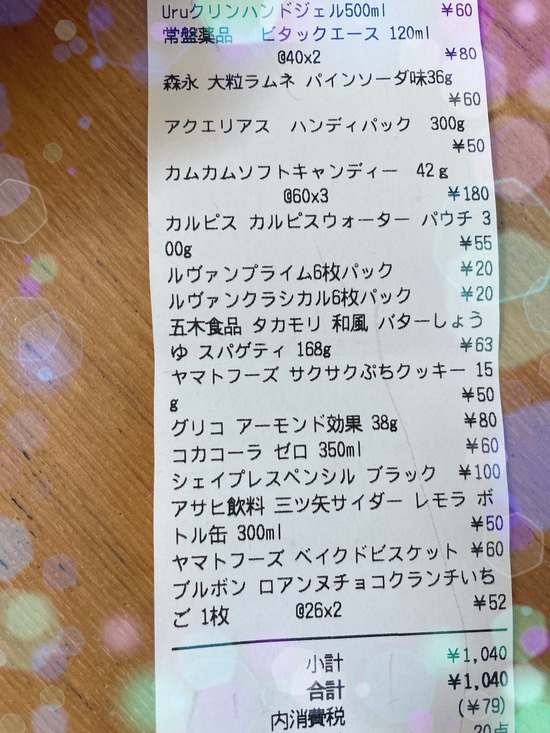 Uruクリンハンドジェル500ml ¥60
常盤薬品 ビタックエース 120ml
@40x2 ¥80
森永 大粒ラムネ パインソーダ味36g
¥60
アクエリアス ハンディパック 300g
¥50
カムカムソフトキャンディー 42g
@60x3 ¥180
カルピス カルピスウォーター パウチ 3
00g ¥55
ルヴァンプライム6枚パック ¥20
ルヴァンクラシカル6枚パック ¥20
五木食品 タカモリ 和風 バターしょう
ゆ スパゲティ 168g ¥63
ヤマトフーズ サクサクぷちクッキー 15
g ¥50
グリコ アーモンド効果 38g ¥80
コカコーラ ゼロ 350ml ¥60
シェイプレスペンシル ブラック ¥100
アサヒ飲料 三ツ矢サイダー レモラ ボ
トル缶 300ml ¥50
ヤマトフーズ ベイクドビスケット ¥60
ブルボン ロアンヌチョコクランチいち
ご 1枚 @26x2 ¥52
小計 ¥1,040
合計 ¥1,040
内消費税 (¥79)
20点